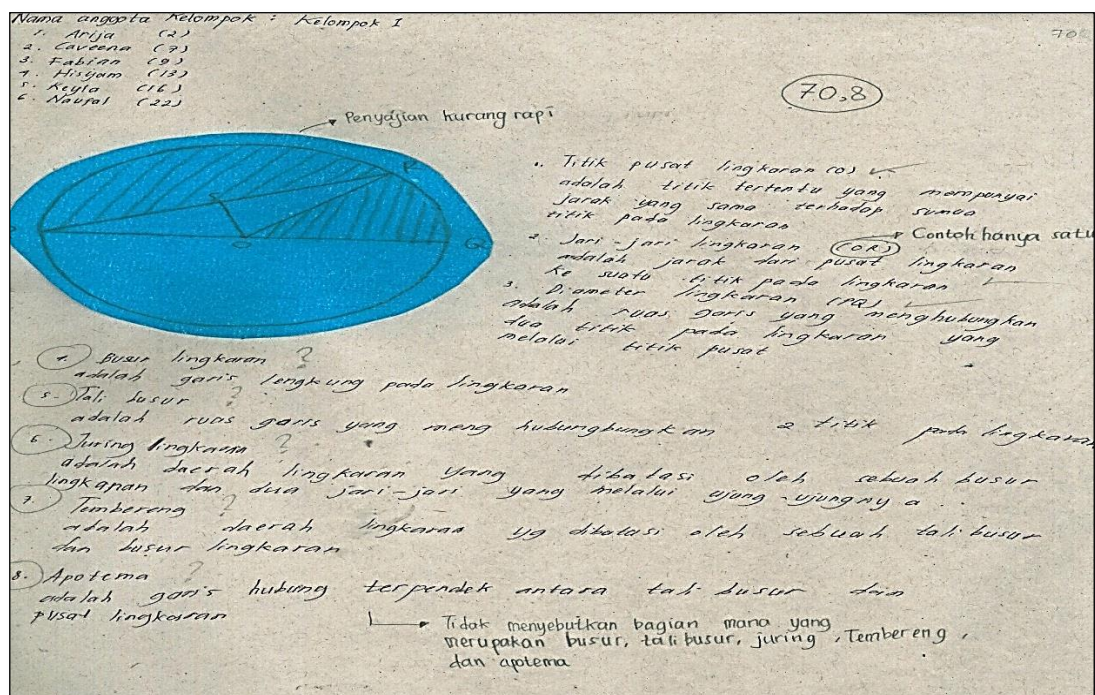 Nama anggota Kelompok : Kelompok I
1. Arija (2)
2. Caveena (7)
3. Fabian (9)
4. Hisyam (13)
5. Keyla (16)
6. Naufal (22)
70,8
Penyajian kurang rapi
1. Titik pusat lingkaran (O)
adalah titik tertentu yang mempunyai
jarak yang sama terhadap semua
titik pada lingkaran
2. Jari-jari lingkaran (OR)
Contoh hanya satu
adalah jarak dari pusat lingkaran
ke suatu titik pada lingkaran
3. Diameter lingkaran (PQ)
adalah ruas garis yang menghubungkan
dua titik pada lingkaran yang
melalui titik pusat
R
O
Q
4. Busur lingkaran ?
adalah garis lengkung pada lingkaran
5. Tali busur ?
adalah ruas garis yang meng hubungbungkan 2 titik pada lingkaran
6. Juring lingkaran ?
adalah daerah lingkaran yang dibatasi oleh sebuah busur
lingkapan dan dua jari-jari yang melalui ujung-ujungny a
7. Tembereng ?
adalah daerah lingkaran yg dibatasi oleh sebuah tali busur
dan busur lingkaran
8. Apotema ?
adalah garis hubung terpendek antara tali busur dan
pusat lingkaran
Tidak menyebutkan bagian mana yang
merupakan busur, tali busur, juring, Tembereng,
dan apotema